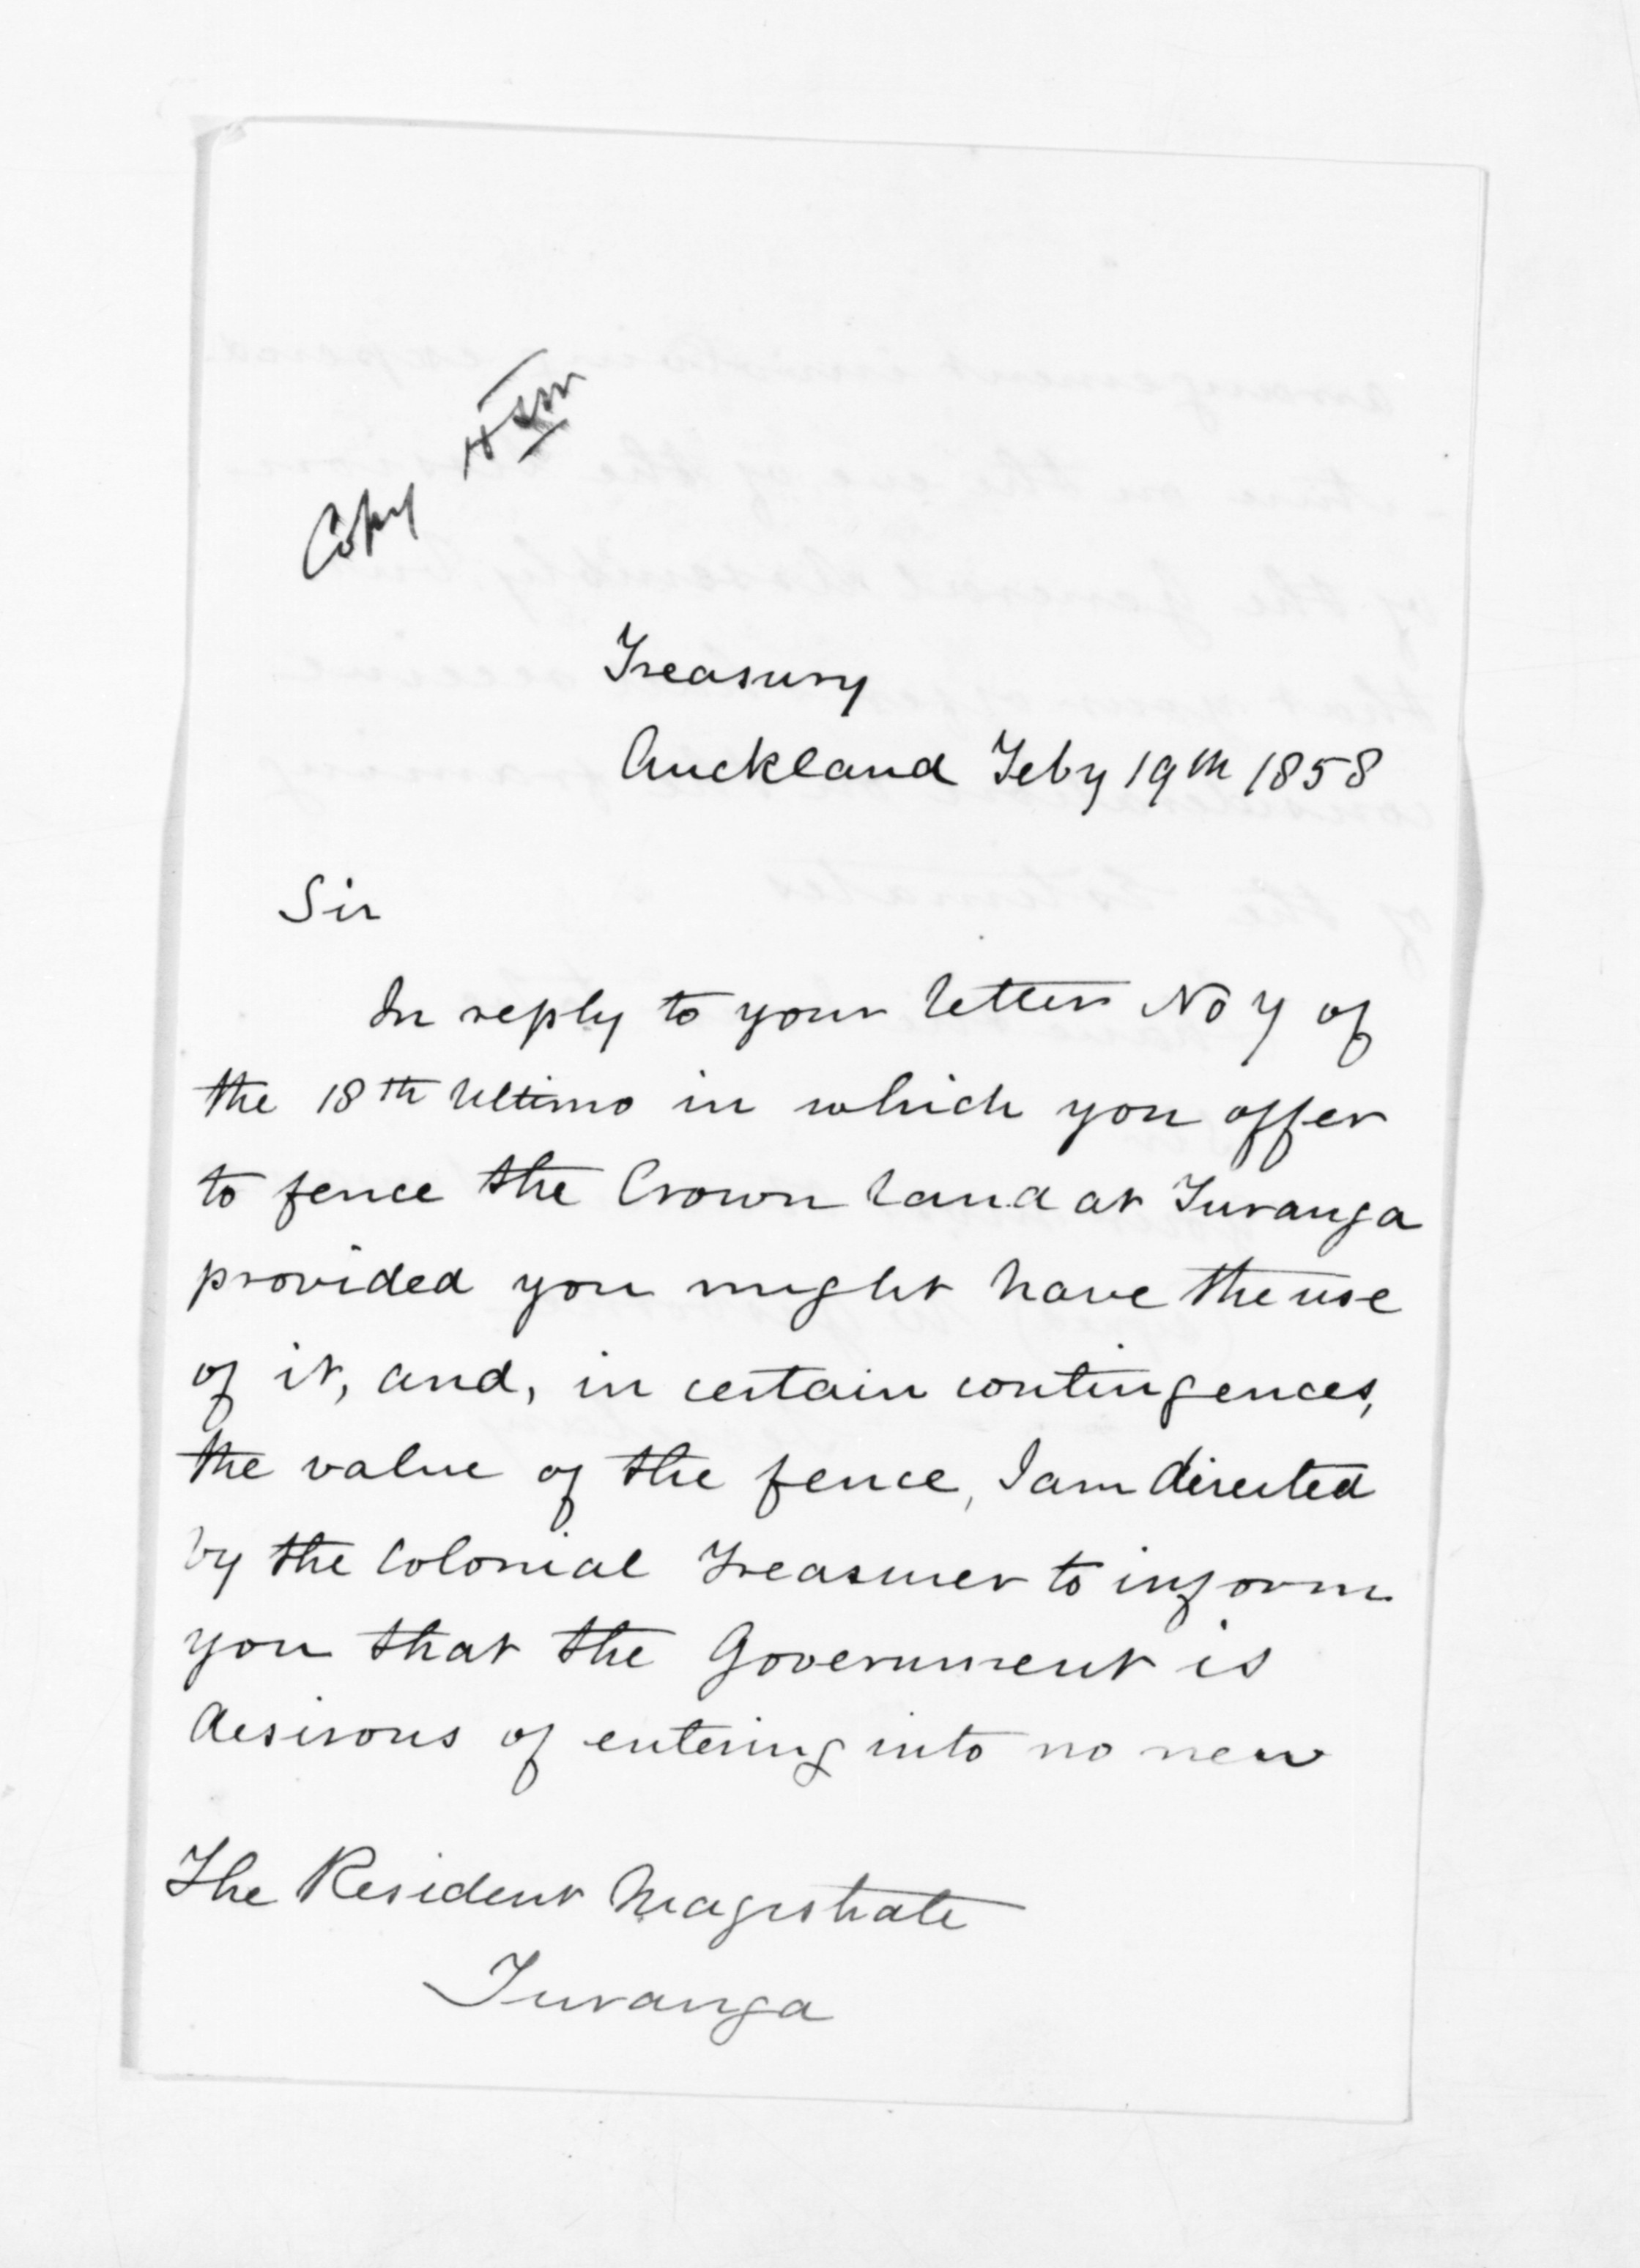 Copy
Treasury
Auckland Feby 19th 1858
Sir
In reply to your letter No 7 of
the 18th Ultimo in which you offer
to fence the Crown land at Turanga
provided you might have the use
of it, and, in certain contingences,
the value of the fence, I am directed
by the Colonial Treasurer to inform
you that the Government is
desirous of entering into no new
The Resident Magistrate
Turanga